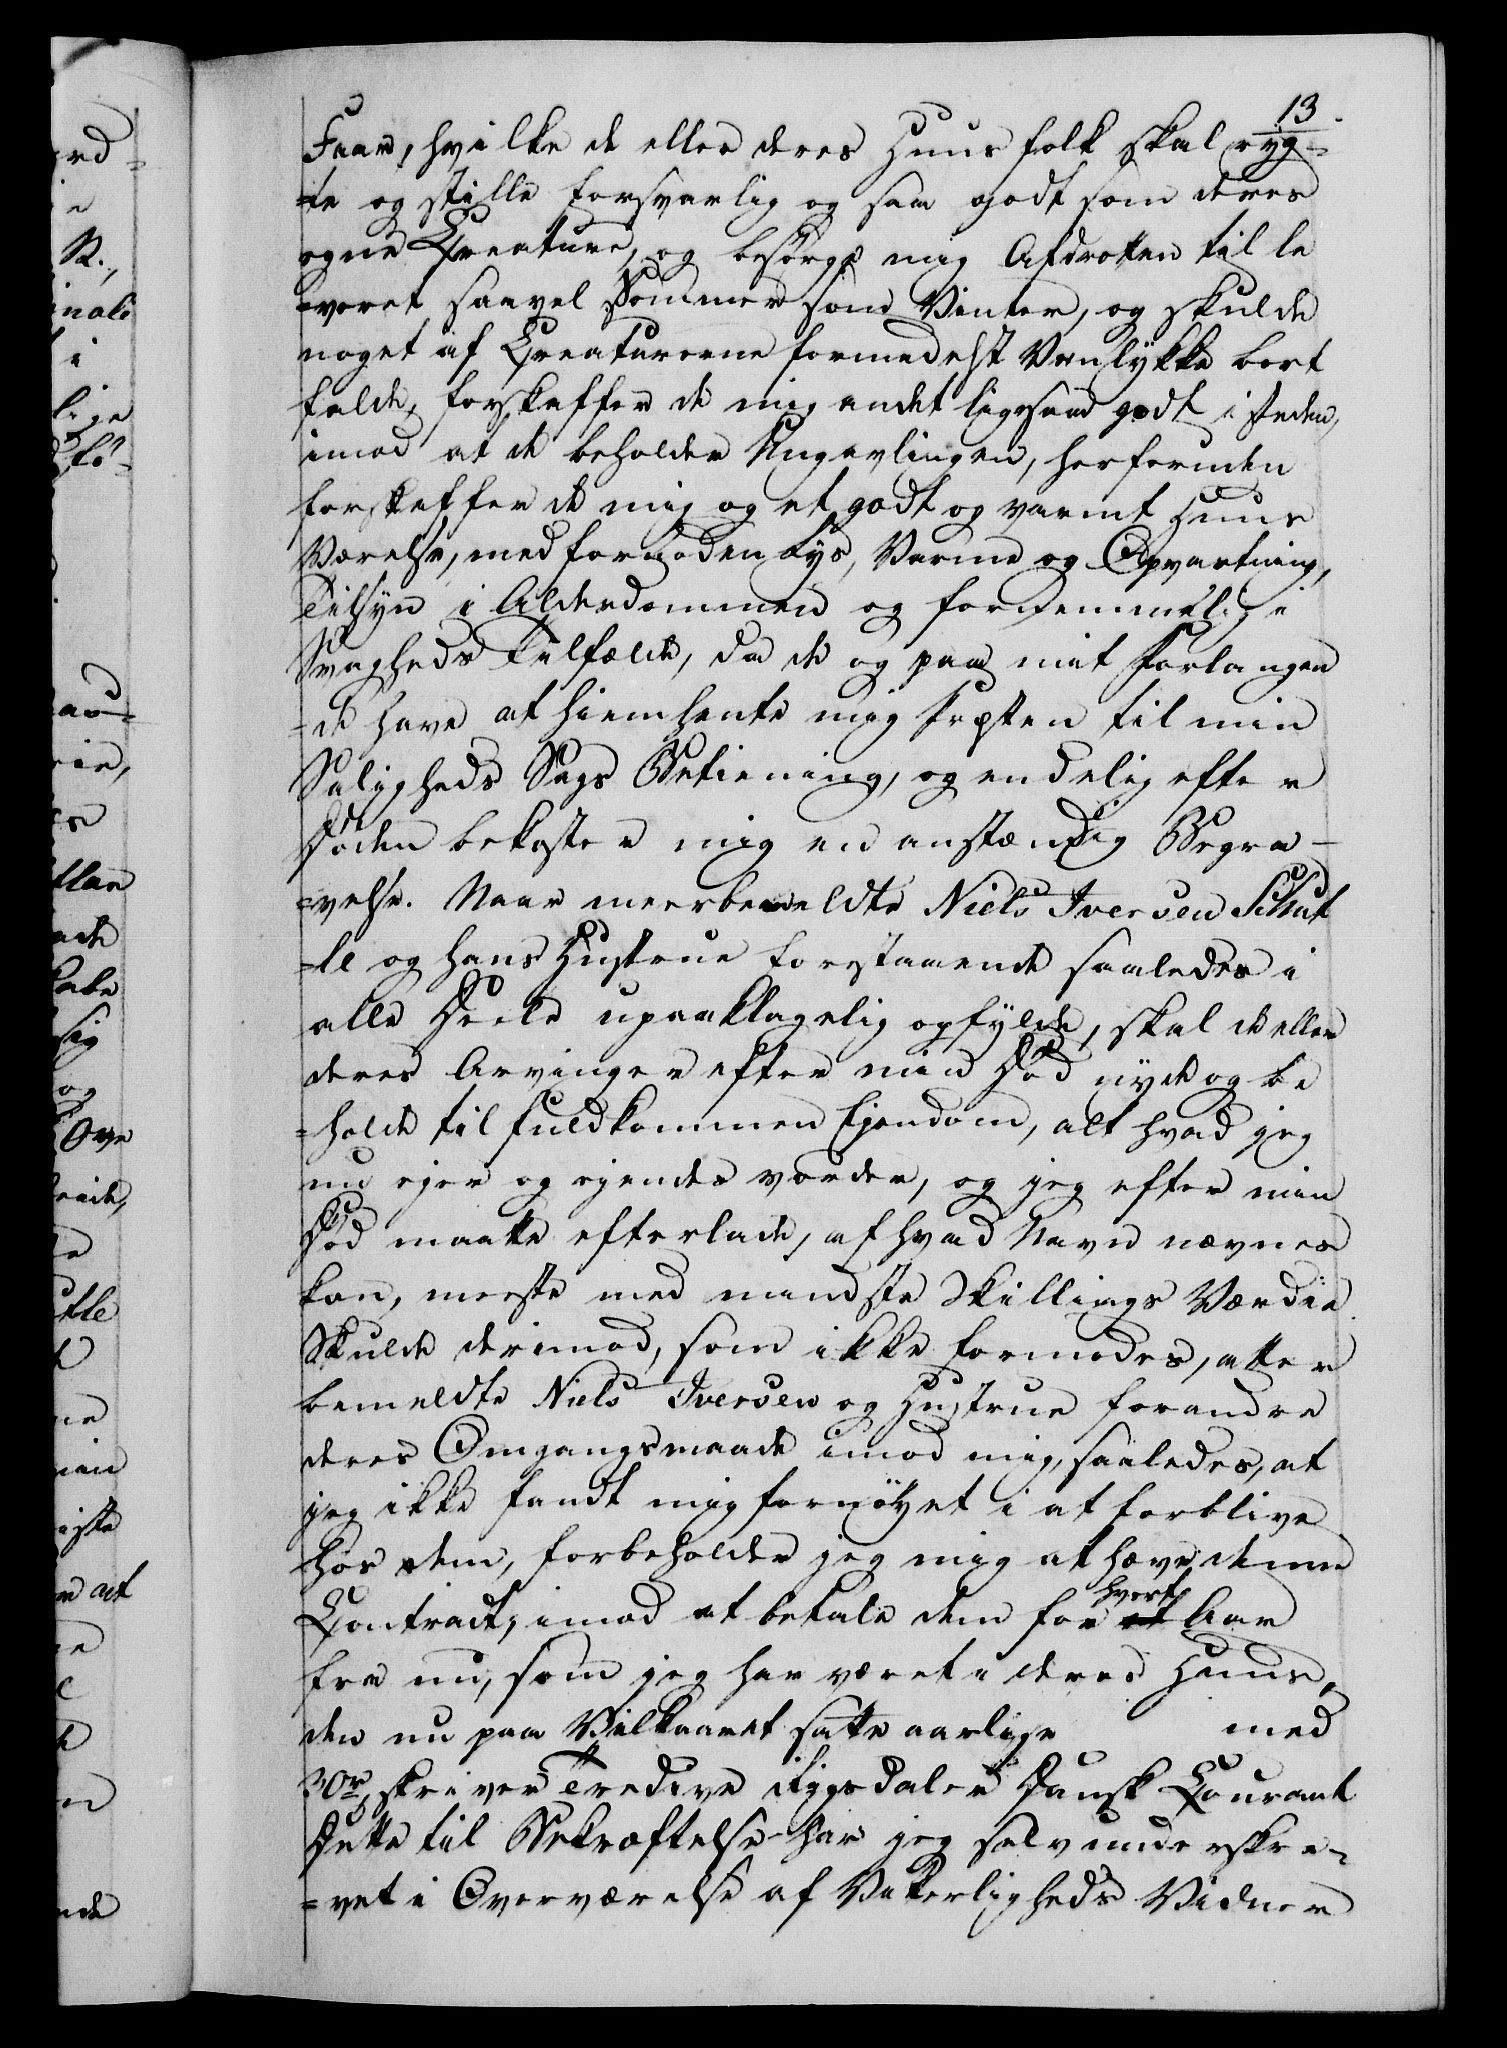 13
Faar, hvilke de eller deres Huus folk skal røg-
-te og stille forsvarlig og saa godt som deres
egne Creature, og besørge mig Afdrotten til le
-veret saavel Sommer som Vinter, og skulde
noget af Creaturerne formedelst Vanlykke bort
falde, forskaffer de mig andet ligesaa godt i steden,
imod at de beholder Ungavlingen, herforuden
forskaffer de mig og et godt og varmt Huus
Værelse, med fornøden Lys, Varme og Opvartning,
Tilsyn i Alderdommen og fornemmelig i
Svagheds Tilfælde, da de og paa mit Forlangen
-de have at hiemhente mig Præsten til min
Saligheds Sags Betiening, og endelig efter
Døden bekoster mig en anstændig Begra-
-velse. Naar meerbemeldte Niels Iversen Schut
-le og hans Hustrue forestaaende saaledes i
alle Deele upaaklagelig opfylde, skal de eller
deres Arvinger efter min Død nyde og be
-holde til fuldkommen Ejendom, alt hvad jeg
nu ejer og ejendes vorder, og jeg efter min
Død maatte efterlade, af hvad Navn nævnes
kan, meeste med mindste Skillings Værdie
Skulde derimod, som ikke formodes, atter
bemeldte Niels Iversen og Hustrue forandre
deres Omgangsmaade imod mig, saaledes, at
jeg ikke fandt mig fornøyet i at forblive
hos dem, forbeholder jeg mig at hæve denne
Contract, imod at betale dem for hvert Aar
fra nu, som jeg har været i deres Huus,
den nu paa Vilkaaret satte aarlige med
30r, skriver Tredive Rigsdaler Dansk Courant
Dette til Bekræftelse har jeg selv underskre-
-vet i Overværelse af Vitterligheds Vidner